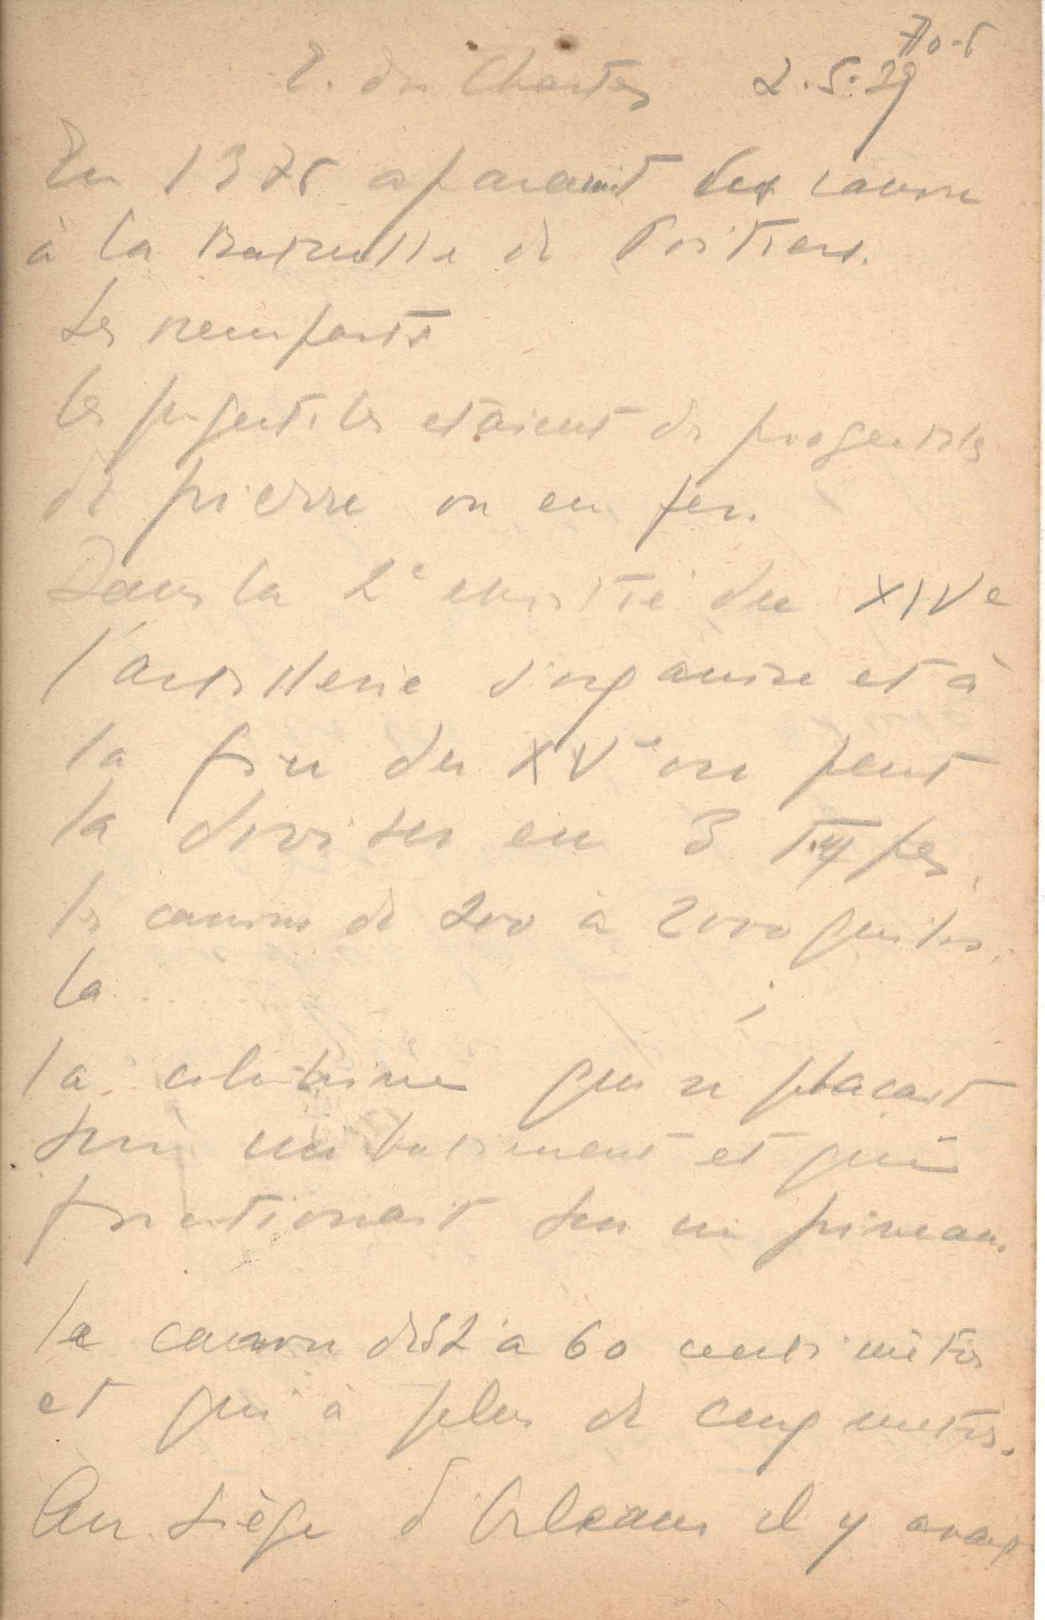 70-5
E. des Chartes 2.5.29
En 1375 aparaint les canon
à la Bataille de Poitiers.
Les remparts
les projectiles etaient de progectiles
de pierre ou en fer.
Dans la 2e moitié du XIVe
l'artillerie s'organise et à
la fin du XVe on peut
la diviser en 3 types.
les canons de 200 à 2000
la ;
la culuvrine qui se placait
sur un batiment et qui
fonctionait sur un pineau.
le canon de 52 à 60 centimètres
et qui à plus de cinq metres.
Au siège d'Orleans il y avait